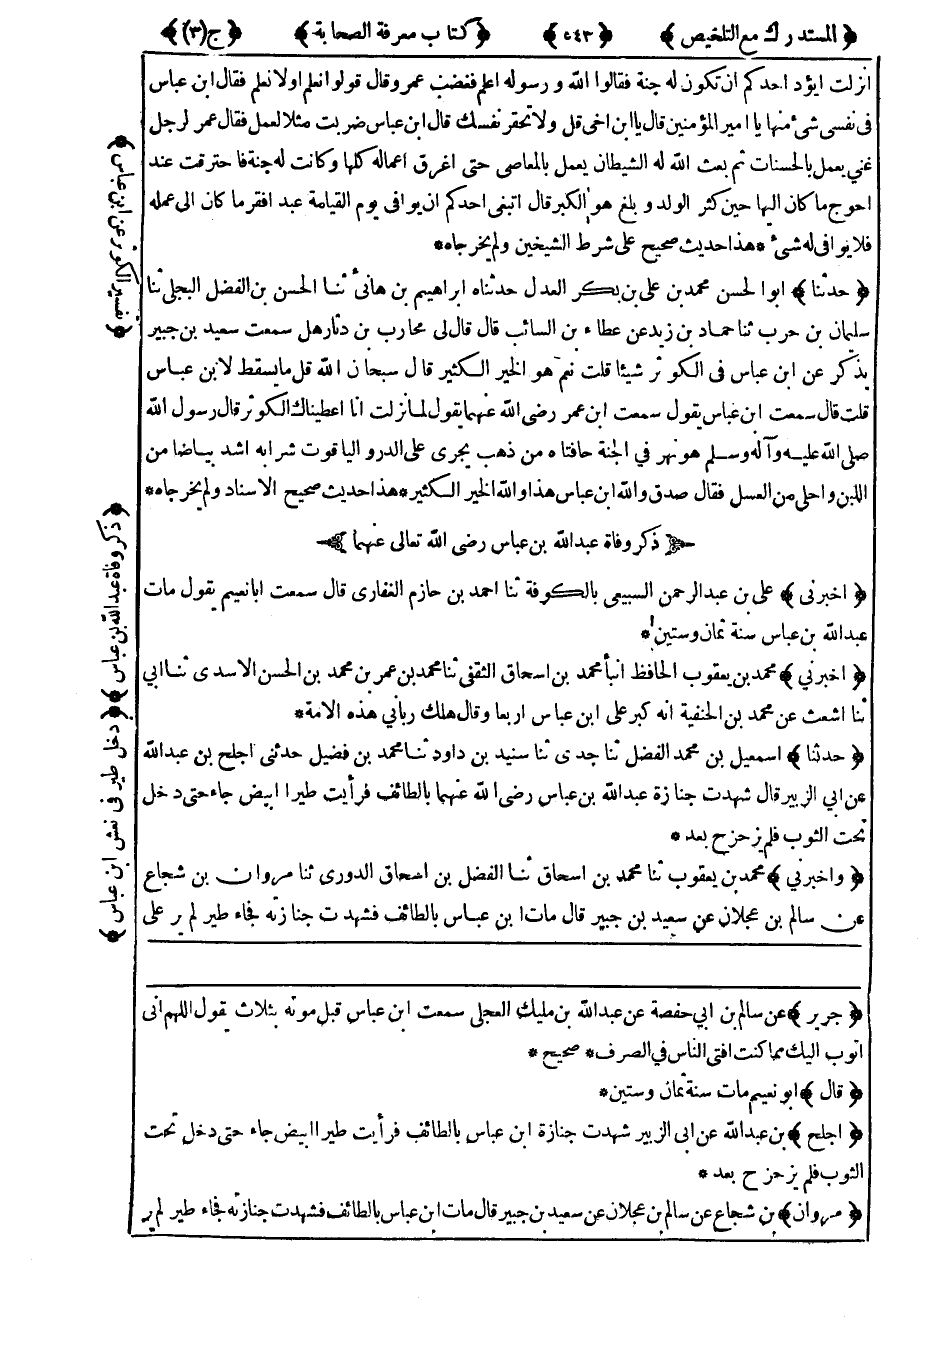 ﴿ المستدرك مع التلخيص ﴾ ﴿ ٥٤٣ ﴾ ﴿ كتاب معرفة الصحابة ﴾ ﴿ ج(٣) ﴾
انزلت ايود احدكم ان تكون له جنة فقالوا الله و رسوله اعلم فغضب عمر وقال قولوا نعلم اولا نعلم فقال ابن عباس
فى نفسى شئ منها يا امير المؤمنين قال يا ابن اخى قل ولا تحقر نفسك قال ابن عباس ضربت مثلا لعمل فقال عمر لرجل
غني يعمل بالحسنات ثم بعث الله له الشيطان يعمل بالمعاصى حتى اغرق اعماله كلها وكانت له جنة فاحترقت عند
احوج ما كان اليها حين كثر الولد و بلغ هو الكبر قال ايبغى احدكم ان يوافى يوم القيامة عبد افقر ما كان الى عمله
فلا يوافى له شئ * هذا حديث صحيح على شرط الشيخين ولم يخرجاه *
﴿ حدثنا ﴾ ابوا لحسن محمد بن على بن بكر العدل حدثناه ابراهيم بن هانئ ثنا الحسن بن الفضل البجلى ثنا
سليمان بن حرب ثنا حماد بن زيد عن عطاء بن السائب قال قال لى محارب بن دثار هل سمعت سعيد بن جبير
يذكر عن ابن عباس فى الكوثر شيئا قلت نعم هو الخير الكثير قال سبحان الله قل ما يسقط لابن عباس
قلت قال سمعت ابن عباس يقول سمعت ابن عمر رضى الله عنهما يقول لما نزلت انا اعطيناك الكوثر قال رسول الله
صلى الله عليه وآله وسلم هو نهر في الجنة حافتاه من ذهب يجرى على الدر والياقوت شرابه اشد بياضا من
اللبن واحلى من العسل فقال صدق والله ابن عباس هذا والله الخير الكثير * هذا حديث صحيح الاسناد ولم يخرجاه *
ذكر وفاة عبدالله بن عباس رضى الله تعالى عنهما
﴿ اخبرنى ﴾ على بن عبدالرحمن السبيعى بالكوفة ثنا احمد بن حازم الغفارى قال سمعت ابا نعيم يقول مات
عبدالله بن عباس سنة ثمان وستين *
﴿ اخبرنى ﴾ محمد بن يعقوب الحافظ انبأ محمد بن اسحاق الثقفى ثنا محمد بن عمر بن محمد بن الحسن الاسدى ثنا ابى
ثنا اشعث عن محمد بن الحنفية انه كبر على ابن عباس اربعا وقال هلك رباني هذه الامة *
﴿ حدثنا ﴾ اسمعيل بن محمد الفضل ثنا جدى ثنا سنيد بن داود ثنا محمد بن فضيل حدثنى اجلح بن عبدالله
عن ابي الزبير قال شهدت جنازة عبدالله بن عباس رضى الله عنهما بالطائف فرأيت طيرا ابيض جاء حتى دخل
تحت الثوب فلم يزحزح بعد *
﴿ واخبرنى ﴾ محمد بن يعقوب ثنا محمد بن اسحاق ثنا الفضل بن اسحاق الدورى ثنا مروان بن شجاع
عن سالم بن عجلان عن سعيد بن جبير قال مات ابن عباس بالطائف فشهدت جنازته فجاء طير لم ير على
﴿ جرير ﴾ عن سالم بن ابي حفصة عن عبدالله بن مليك العجلى سمعت ابن عباس قبل موته بثلاث يقول اللهم انى
اتوب اليك مما كنت افتى الناس في الصرف * صحيح *
﴿ قال ﴾ ابو نعيم مات سنة ثمان وستين *
﴿ اجلح ﴾ بن عبدالله عن ابى الزبير شهدت جنازة ابن عباس بالطائف فرأيت طيرا ابيض جاء حتى دخل تحت
الثوب فلم يزحزح بعد *
﴿ مروان ﴾ بن شجاع عن سالم بن عجلان عن سعيد بن جبير قال مات ابن عباس بالطائف فشهدت جنازته فجاء طير لم ير
﴿ تفسير الكوثر عن ابن عباس ﴾
﴿ ذكر وفاة عبدالله بن عباس ﴾ ﴿ دخل طير فى نعش ابن عباس ﴾